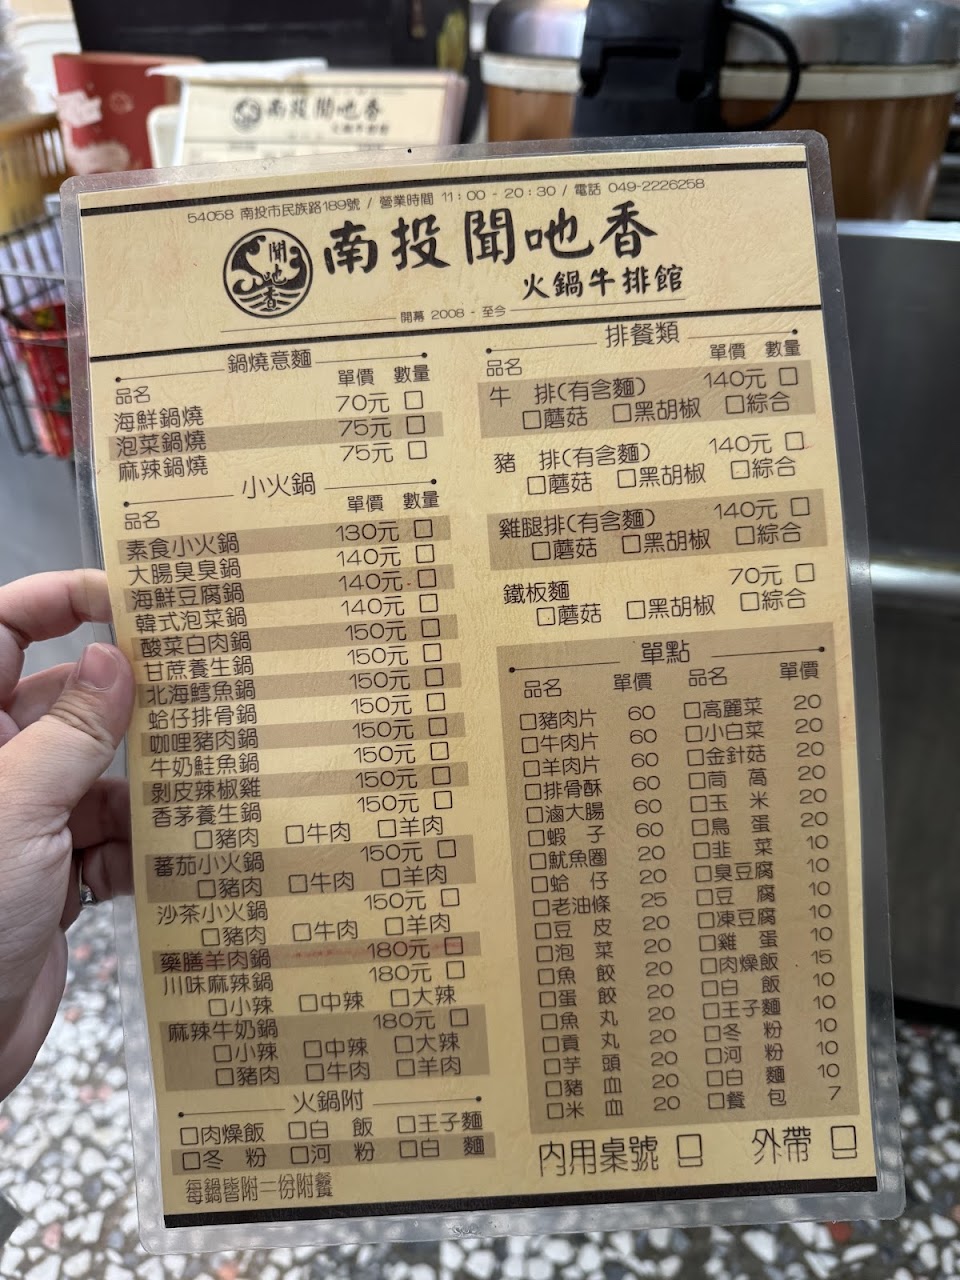 南投聞吔香
54058 南投市民族路189號 / 營業時間 11:00 - 20:30 / 電話 049-2226258
聞吔香
南投聞吔香
火鍋牛排館
開幕 2008 - 至今
鍋燒意麵
品名 單價 數量
海鮮鍋燒 70元 □
泡菜鍋燒 75元 □
麻辣鍋燒 75元 □
小火鍋
品名 單價 數量
素食小火鍋 130元 □
大腸臭臭鍋 140元 □
海鮮豆腐鍋 140元 □
韓式泡菜鍋 140元 □
酸菜白肉鍋 150元 □
甘蔗養生鍋 150元 □
北海鱈魚鍋 150元 □
蛤仔排骨鍋 150元 □
咖哩豬肉鍋 150元 □
牛奶鮭魚鍋 150元 □
剝皮辣椒雞 150元 □
香茅養生鍋 150元 □
□豬肉 □牛肉 □羊肉
蕃茄小火鍋 150元 □
□豬肉 □牛肉 □羊肉
沙茶小火鍋 150元 □
□豬肉 □牛肉 □羊肉
藥膳羊肉鍋 180元 □
川味麻辣鍋 180元 □
□小辣 □中辣 □大辣
麻辣牛奶鍋 180元 □
□小辣 □中辣 □大辣
□豬肉 □牛肉 □羊肉
火鍋附
□肉燥飯 □白 飯 □王子麵
□冬 粉 □河 粉 □白 麵
每鍋皆附一份附餐
排餐類
品名 單價 數量
牛 排(有含麵) 140元 □
□蘑菇 □黑胡椒 □綜合
豬 排(有含麵) 140元 □
□蘑菇 □黑胡椒 □綜合
雞腿排(有含麵) 140元 □
□蘑菇 □黑胡椒 □綜合
鐵板麵 70元 □
□蘑菇 □黑胡椒 □綜合
單點
品名 單價 品名 單價
□豬肉片 60 □高麗菜 20
□牛肉片 60 □小白菜 20
□羊肉片 60 □金針菇 20
□排骨酥 60 □茼 萵 20
□滷大腸 60 □玉 米 20
□蝦 子 60 □鳥 蛋 20
□魷魚圈 20 □韭 菜 10
□蛤 仔 20 □臭豆腐 10
□老油條 25 □豆 腐 10
□豆 皮 20 □凍豆腐 10
□泡 菜 20 □雞 蛋 10
□魚 餃 20 □肉燥飯 15
□蛋 餃 20 □白 飯 10
□魚 丸 20 □王子麵 10
□貢 丸 20 □冬 粉 10
□芋 頭 20 □河 粉 10
□豬 血 20 □白 麵 10
□米 血 20 □餐 包 7
內用桌號 □ 外帶 □